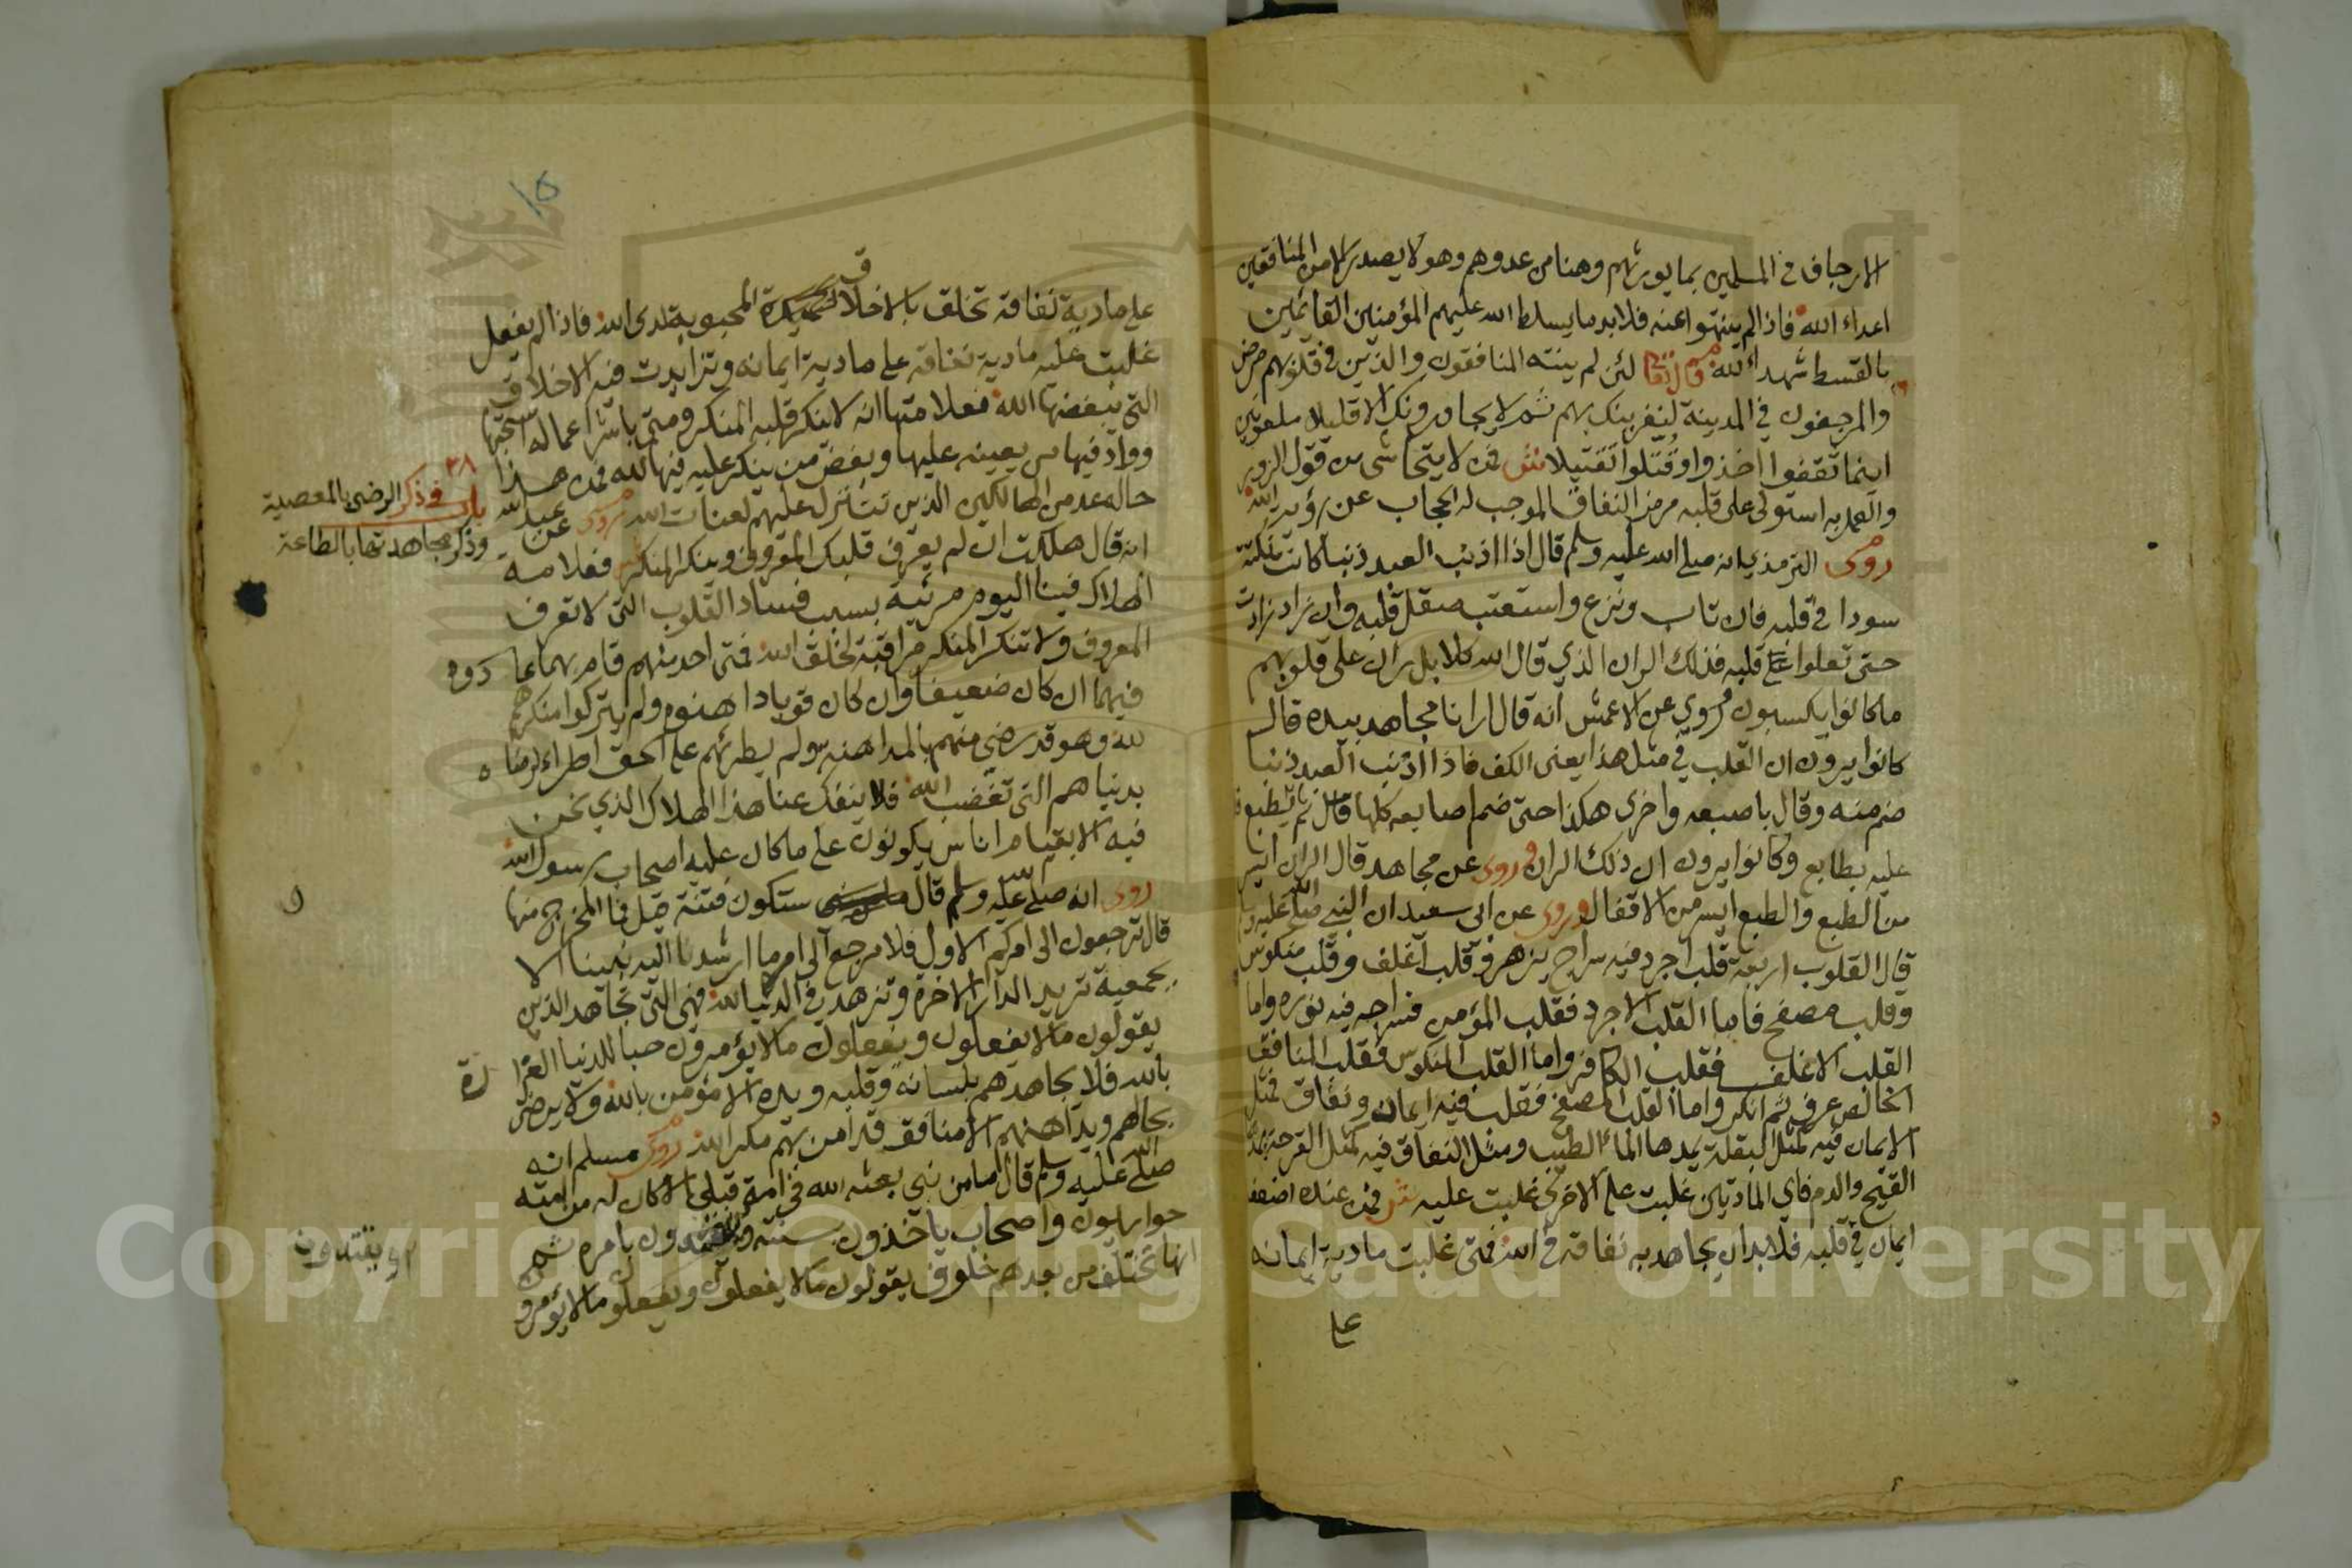 الارجاف في المسلمين بما يورثهم وهنا من عدوهم وهو لا يصدر الا من المنافقين
اعداء الله فاذا لم ينتهوا عنه فلا بد ما يسلط الله عليهم المؤمنين القائمين
بالقسط شهداء لله قال تعالى لئن لم ينته المنافقون والذين في قلوبهم مرض
والمرجفون في المدينة لنغرينك بهم ثم لا يجاورونك الا قليلا ملعونين
اينما ثقفوا اخذوا وقتلوا تقتيلا فمن لا يتحاشى من قول الزور
والعمل به استولى على قلبه مرض النفاق الموجب له الحجاب عن رؤية الله
روى الترمذي انه صلى الله عليه وسلم قال اذا اذنب العبد ذنبا كانت نكتة
سودا في قلبه فان تاب ونزع واستعتب صقل قلبه وان زاد زادت
حتى تعلوا على قلبه فذلك الران الذي قال الله كلا بل ران على قلوبهم
ما كانوا يكسبون وروي عن الاعمش انه قال ارانا مجاهد بيده قال
كانوا يرون ان القلب في مثل هذا يعني الكف فاذا اذنب العبد ذنبا
ضم منه وقال باصبعه واخرى هكذا حتى ضم اصابعه كلها قال ثم يطبع
عليه بطابع وكانوا يرون ان ذلك الران وروى عن مجاهد قال الران ايسر
من الطبع والطبع ايسر من الاقفال وروى عن ابي سعيد ان النبي صلى الله عليه وسلم
قال القلوب اربعة قلب اجرد فيه سراج يزهر وقلب اغلف وقلب منكوس
وقلب مصفح فاما القلب الاجرد فقلب المؤمن فسراجه فيه نوره واما
القلب الاغلف فقلب الكافر واما القلب المنكوس فقلب المنافق
الخالص عرف ثم انكر واما القلب المصفح فقلب فيه ايمان ونفاق فمثل
الايمان فيه كمثل البقلة يمدها الماء الطيب ومثل النفاق فيه كمثل القرحة يمدها
القيح والدم فاي المادتين غلبت على الاخرى غلبت عليه فمن عنده اضعف
ايمان في قلبه فلا بد ان يجاهد به نفاقه في الله فمتى غلبت مادية ايمانه
على
١٥
على مادية نفاقه تخلق بالاخلاق الحميدة المحبوبة لدى الله فاذا لم يفعل
غلبت عليه مادية نفاقه على مادية ايمانه وتزايدت فيه الاخلاق
التي يبغضها الله فعلامتها انه لا ينكر قلبه المنكر ومتى باشر اعماله استحبها
ووادّ فيها من يعينه عليها وبغض من ينكر عليه فيها لله فمن هذا
حاله عد من الهالكين الذين تتنزل عليهم لعنات الله روى عن عبد الله
انه قال هلكت ان لم يعرف قلبك المعروف وينكر المنكر فعلامة
الهلاك فينا اليوم مرئية بسبب فساد القلوب التي لا تعرف
المعروف ولا تنكر المنكر مراقبة لخلق الله فمتى احد منهم قام بهما عادوه
فيهما ان كان ضعيفا وان كان قويا داهنوه ولم يتركوا منكرهم
لله وهو قد رضي منهم بالمداهنة ولم يطرئهم على الحق اطراء لرضاه
بدنياهم التي تغضب الله فلا ينفك عنا هذا الهلاك الذي نحن
فيه الا بقيام اناس يكونون على ما كان عليه اصحاب رسول الله
روى انه صلى الله عليه وسلم قال ستكون فتنة قيل فما المخرج منها
قال ترجعون الى امركم الاول فلا مرجع الى امر ما ارشدنا اليه نبينا الا
بجمعية تريد الدار الاخرة وتزهد في الدنيا لله فهي التي تجاهد الذين
يقولون ما لا يفعلون ويفعلون ما لا يؤمرون حبا للدنيا الغرارة
بالله فلا يجاهدهم بلسانه وقلبه ويده الا مؤمن بالله ولا يرضى
بحالهم ويداهنهم الا منافق قد امن بهم مكر الله روى مسلم انه
صلى الله عليه وسلم قال ما من نبي بعثه الله في امة قبلي الا كان له من امته
حواريون واصحاب ياخذون بسنته ويقتدون بامره ثم
انها تختلف من بعدهم خلوف يقولون ما لا يفعلون ويفعلون ما لا يؤمرون
٢٨
باب في ذكر الرضى بالمعصية
وذكر مجاهدتها بالطاعة
ويقتدون
Copyright © King Saud University